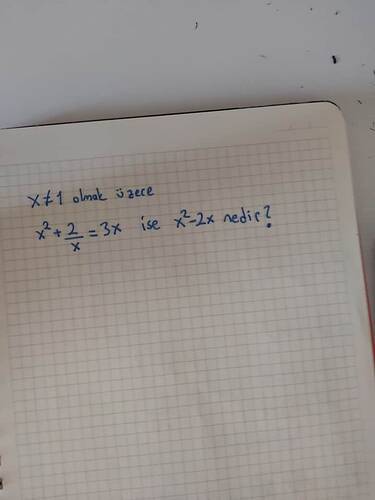 x≠1 olmak üzere
x²+2/x=3x ise x²-2x nedir?